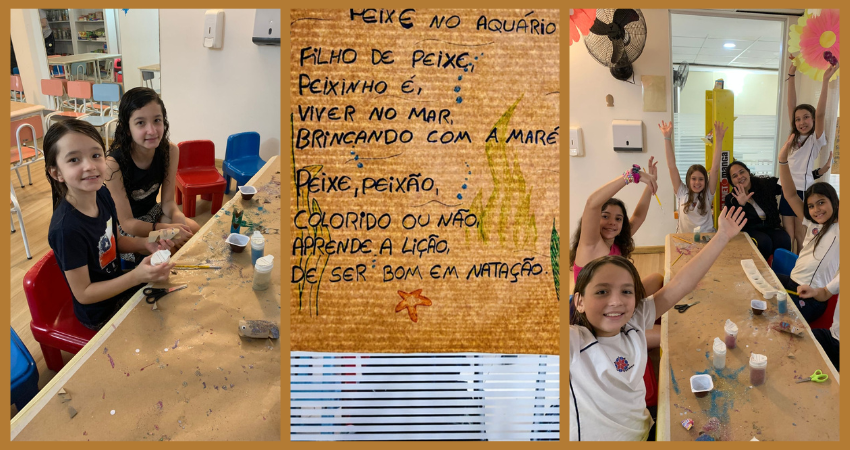 PEIXE NO AQUÁRIO
FILHO DE PEIXE,
PEIXINHO É,
VIVER NO MAR,
BRINCANDO COM A MARÉ
PEIXE, PEIXÃO,
COLORIDO OU NÃO,
APRENDE A LIÇÃO,
DE SER BOM EM NATAÇÃO.